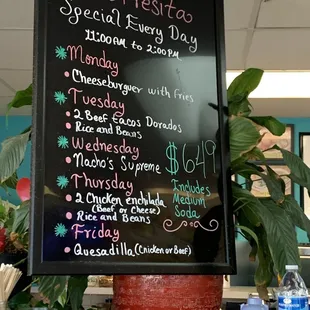 Special Every Day
11:00AM to 2:00PM.
Monday
Cheeseburguer with fries
Tuesday
2 Beef tacos Dorados
Rice and Beans
Wednesday
Nacho's Supreme
$6.49
Thursday
Includes
2 Chicken enchilada
Medium
(Beef or Cheese)
Soda
Rice and Beans
Friday
Quesadilla (Chicken or Beef)